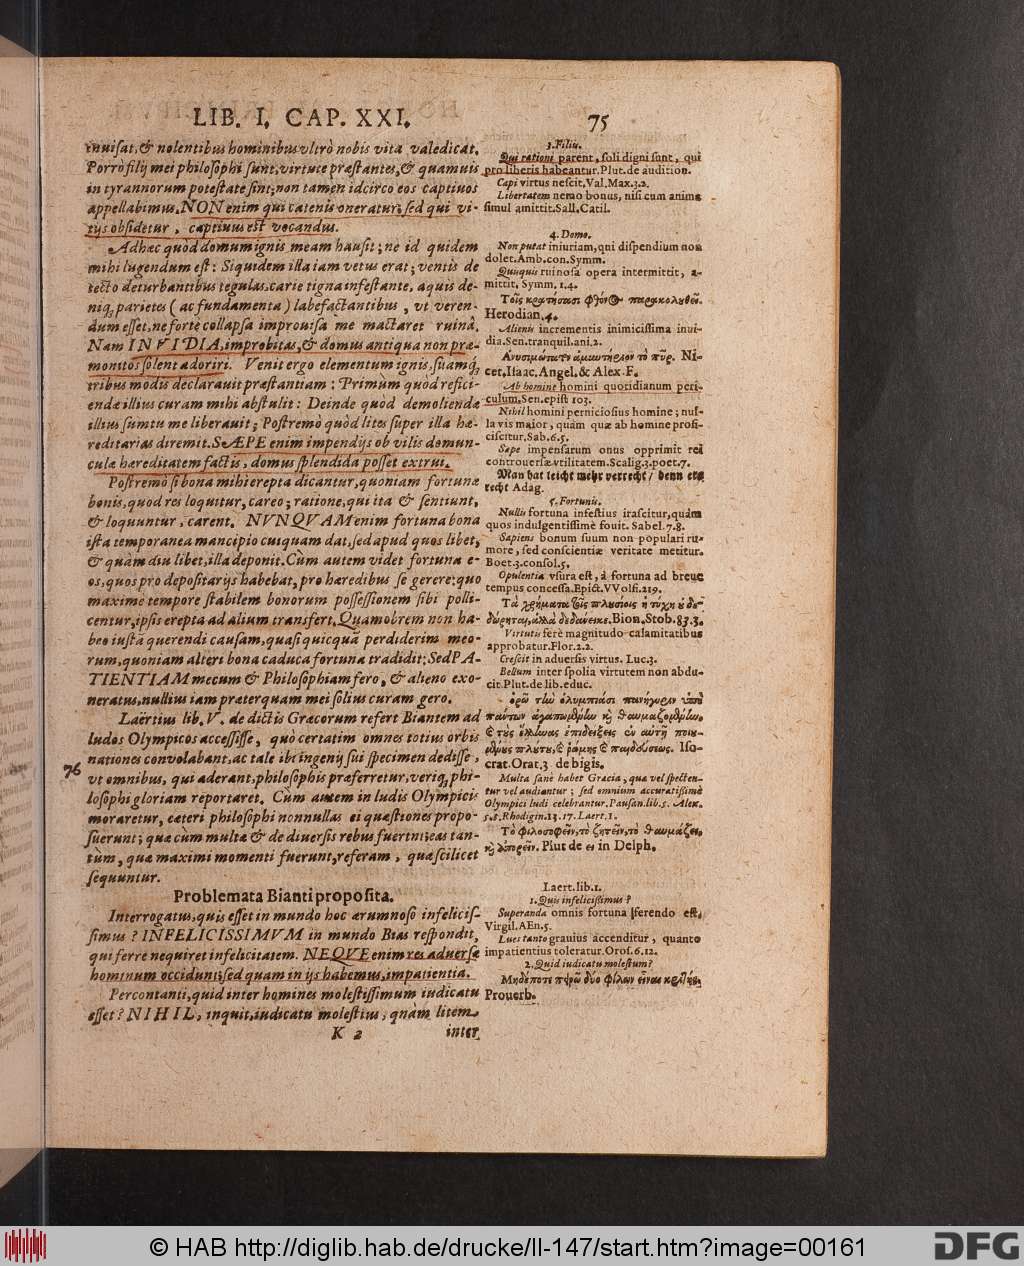 LIB. I. CAP. XXI. 75
inuisat, & nolentibus hominibus vltrò nobis vita valedicat.
Porrò filij mei philosophi sunt, virtute præstantes, & quamuis
in tyrannorum potestate sint; non tamen idcirco eos captiuos
appellabimus. NON enim qui catenis oneratur; sed qui vi-
tijs obsidetur, captiuus est vocandus.
Adhæc quòd domum ignis meam hausit; ne id quidem
mihi lugendum est: Siquidem illa iam vetus erat; ventis de
tecto deturbantibus tegulas, carie tigna infestante, aquis de-
niq; parietes (ac fundamenta) labefactantibus, vt veren-
dum esset, ne fortè collapsa improuisa me mactaret ruinâ.
Nam INVIDIA, improbitas, & domus antiqua non præ-
monitos solent adoriri. Venit ergo elementum ignis, suamq;
tribus modis declarauit præstantiam: Primum quòd refici-
endæ illius curam mihi abstulit: Deinde quòd demoliendæ
illius sumtu me liberauit; Postremò quòd lites super illa hæ-
reditarias diremit. SÆPE enim impendijs ob vilis domun-
culæ hæreditatem factis, domus splendida posset extrui.
Postremò si bona mihi erepta dicantur, quoniam fortunæ
bonis, quod res loquitur, careo; ratione, qui ita & sentiunt,
& loquuntur, carent. NVNQVAM enim fortuna bona
ista temporanea mancipio cuiquam dat, sed apud quos libet,
& quàm diu libet, illa deponit. Cùm autem videt fortuna e-
os, quos pro depositarijs habebat, pro hæredibus se gerere; quo
maximè tempore stabilem bonorum possessionem sibi polli-
centur, ipsis erepta ad alium transfert. Quamobrem non ha-
beo iustā querendi causam, quasi quicquā perdiderim meo-
rum, quoniam alteri bona caduca fortuna tradidit: Sed PA-
TIENTIAM mecum & Philosophiam fero, & alieno exo-
neratus, nullius iam præterquam mei solius curam gero.
Laërtius lib. V. de dictis Græcorum refert Biantem ad
ludos Olympicos accessisse, quò certatim omnes totius orbis
nationes convolabant, ac tale ibi ingenij sui specimen dedisse,
76
vt omnibus, qui aderant, philosophis præferretur, veriq; phi-
losophi gloriam reportaret. Cùm autem in ludis Olympicis
moraretur, cæteri philosophi nonnullas ei quæstiones propo-
suerunt; quæ cùm multæ & de diuersis rebus fuerint; eas tan-
tum, quæ maximi momenti fuerunt, referam, quæ scilicet
sequuntur.
Problemata Bianti proposita.
Interrogatus, quis esset in mundo hoc ærumnoso infelicis-
simus? INFELICISSIMVM in mundo Bias respondit,
qui ferre nequiret infelicitatem. NEQVE enim res aduersæ
hominum occidunt; sed quam in ijs habemus, impatientia.
Percontanti, quid inter homines molestissimum iudicatu
esset? NIHIL, inquit, iudicatu molestius, quàm litem
K 2 inter
3. Filiu.
Qui rationi parent, soli digni sunt, qui
pro liberis habeantur. Plut. de audition.
Capi virtus nescit. Val. Max. 3. 2.
Libertatem nemo bonus, nisi cum anima
simul amittit. Sall. Catil.
4. Domo.
Non putat iniuriam, qui dispendium non
dolet. Amb. con. Symm.
Quisquis ruinosa opera intermittit, a-
mittit. Symm. 1. 4.
Herodian. 4.
Alienis incrementis inimicissima inui-
dia. Sen. tranquil. ani. 2.
Ni-
cet. Isaac. Angel. & Alex F.
Ab homine homini quotidianum peri-
culum. Sen. epist 103.
Nihil homini perniciosius homine; nul-
la vis maior, quàm quæ ab homine profi-
ciscitur. Sab. 6. 5.
Sæpe impensarum onus opprimit rei
controuersæ vtilitatem. Scalig. 3. poet. 7.
Man hat leicht mehr verrecht / denn er
recht Adag.
5. Fortunis.
Nullis fortuna infestius irascitur, quàm
quos indulgentissimè fouit. Sabel. 7. 8.
Sapiens bonum suum non populari ru-
more, sed conscientiæ veritate metitur.
Boet. 3. consol. 5.
Opulentia vsura est, à fortuna ad breue
tempus concessa. Epict. VVolfi. 219.
Τὰ χρήματα τοῖς πλουσίοις ἡ τύχη οὐ δε-
δώρηται, ἀλλὰ δεδάνεικε. Bion. Stob. 93. 3.
Virtutis ferè magnitudo calamitatibus
approbatur. Flor. 2. 2.
Crescit in aduersis virtus. Luc. 3.
Bellum inter spolia virtutem non abdu-
cit. Plut. de lib. educ.
Iso-
crat. Orat. 3 de bigis.
Multa sanè habet Græcia, quæ vel specten-
tur vel audiantur; sed omnium accuratissimè
Olympici ludi celebrantur. Pausan. lib. 5. Alex.
5. 8. Rhodigin. 13. 17. Laert. 1.
Τὸ φιλοσοφεῖν, τὸ ζητεῖν, τὸ θαυμάζειν,
καὶ ἀπορεῖν. Plut de ei in Delph.
Laert. lib. 1.
1. Quis infelicissimus?
Superanda omnis fortuna ferendo est.
Virgil. AEn. 5.
Lues tanto grauius accenditur, quanto
impatientius toleratur. Oros. 6. 12.
2. Quid iudicatu molestum?
Μηδέποτε πήρῳ δύο φίλων εἶναι κριτής.
Prouerb.
© HAB http://diglib.hab.de/drucke/ll-147/start.htm?image=00161
DFG